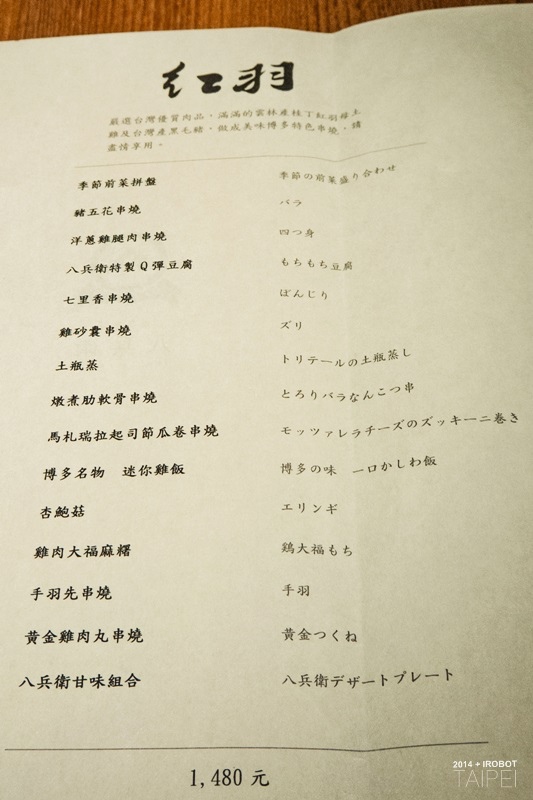 红羽
嚴選台灣優質肉品，滿滿的雲林產桂丁紅羽母土
雞及台灣產黑毛豬，做成美味博多特色串燒，請
盡情享用。
季節前菜拼盤 季節の前菜盛り合わせ
豬五花串燒 バラ
洋蔥雞腿肉串燒 四つ身
八兵衛特製Q彈豆腐 もちもち豆腐
七里香串燒 ぼんじり
雞砂囊串燒 ズリ
土瓶蒸 トリテールの土瓶蒸し
燉煮肋軟骨串燒 とろりバラなんこつ串
馬札瑞拉起司節瓜卷串燒 モッツァレラチーズのズッキーニ巻き
博多名物 迷你雞飯 博多の味 一口かしわ飯
杏鮑菇 エリンギ
雞肉大福麻糬 鶏大福もち
手羽先串燒 手羽
黃金雞肉丸串燒 黃金つくね
八兵衛甘味組合 八兵衛デザートプレート
1,480 元
2014 + IROBOT
TAIPEI